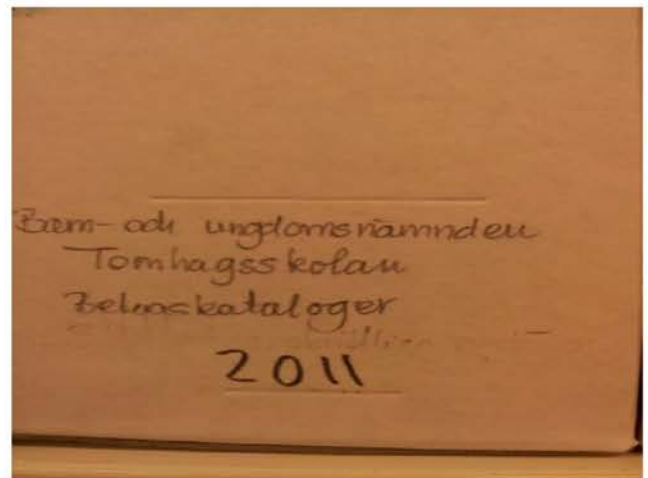 Barn- och ungdomsnämnden
Tomhagsskolan
Betygskataloger
2011